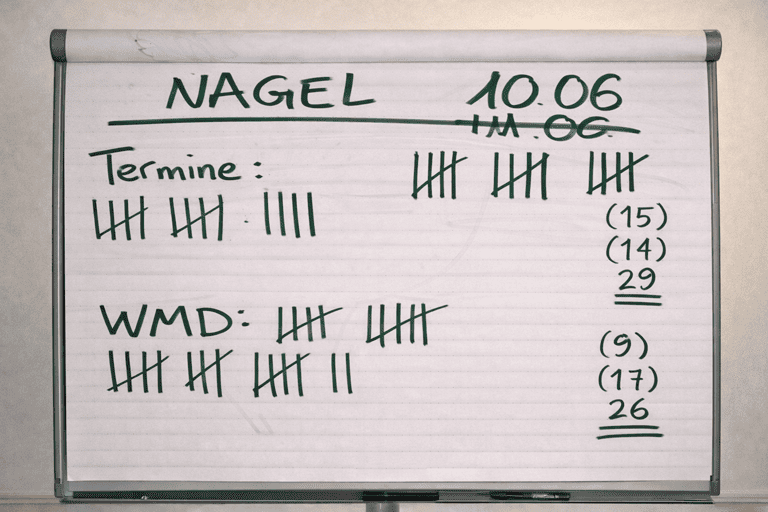 NAGEL 10.06
11.06.
Termine:
(15)
(14)
29
WMD:
(9)
(17)
26